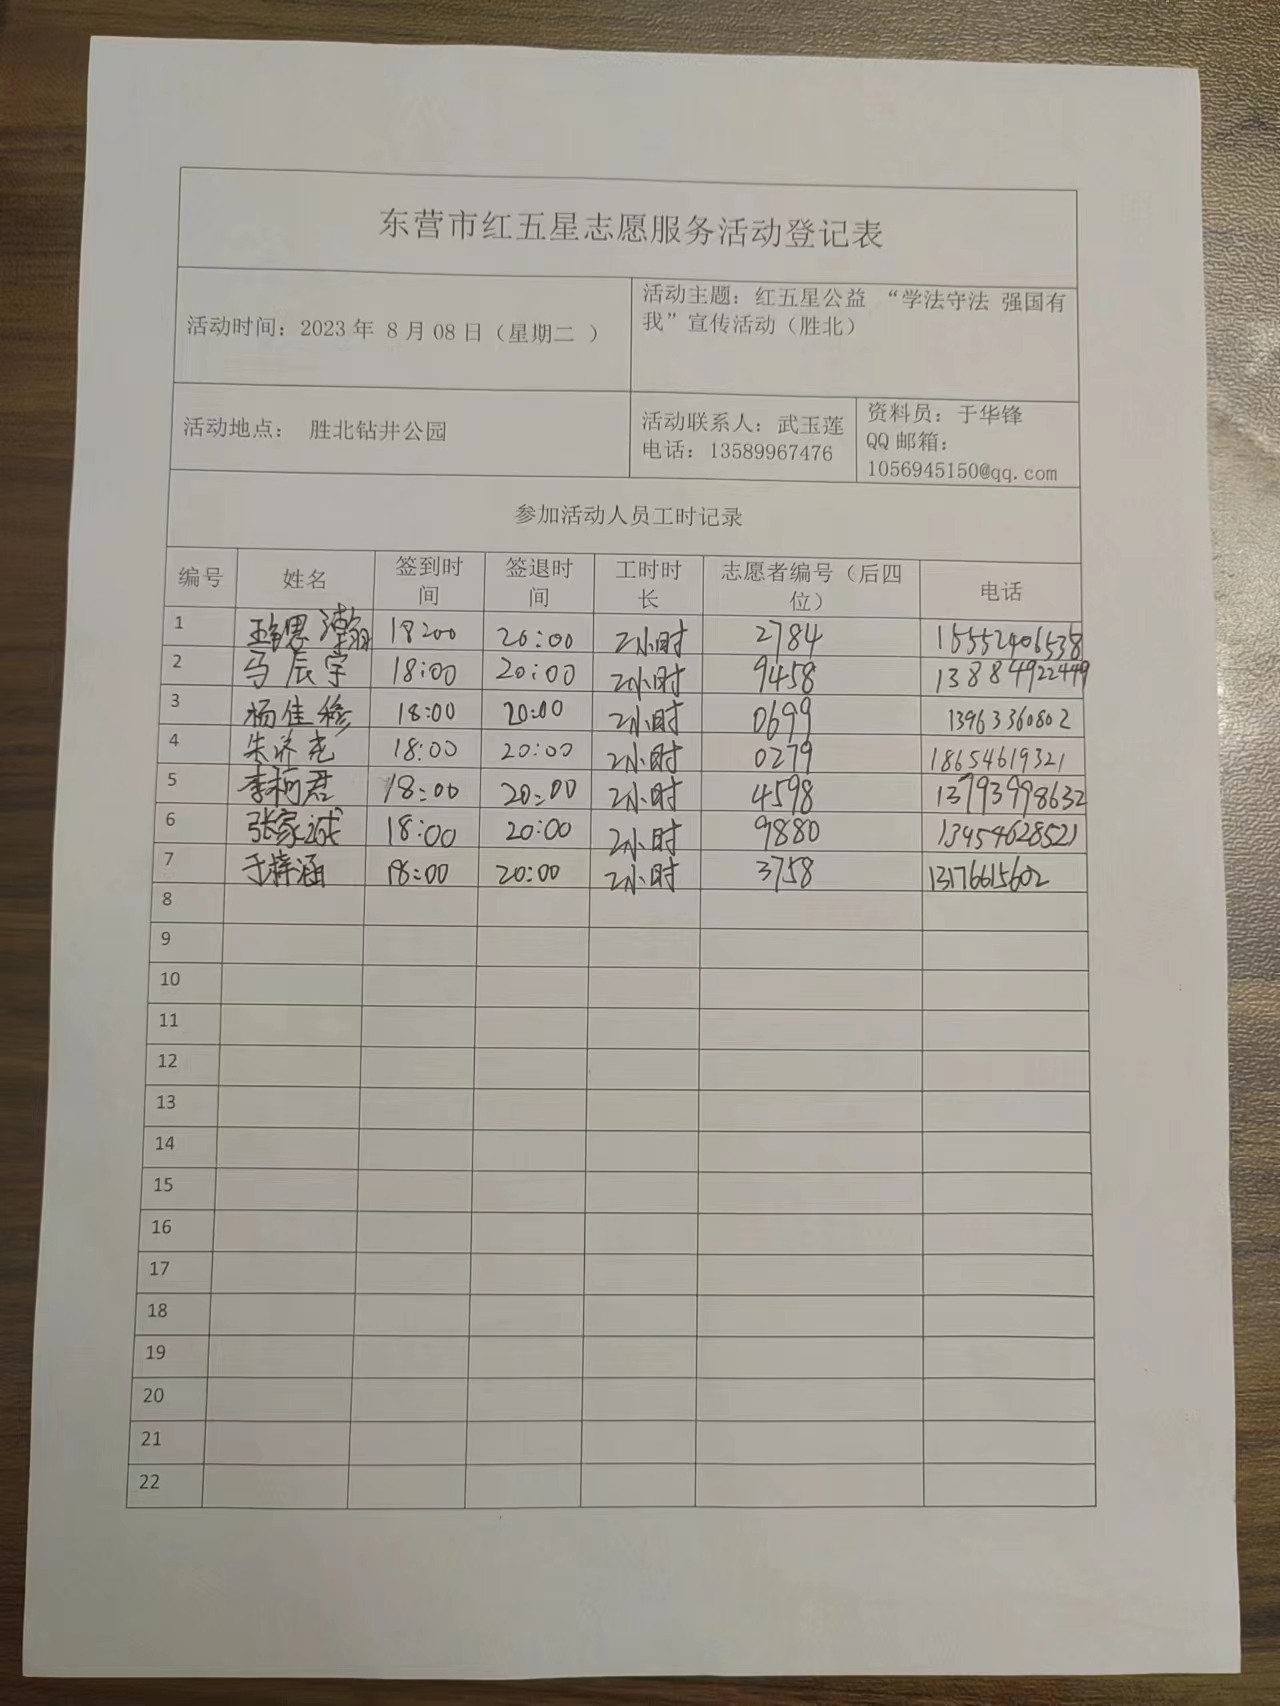 东营市红五星志愿服务活动登记表
活动时间：2023 年 8 月 08 日（星期二 ）
活动主题：红五星公益 “学法守法 强国有
我”宣传活动（胜北）
活动地点： 胜北钻井公园
活动联系人：武玉莲
电话：13589967476
资料员：于华锋
QQ 邮箱：
1056945150@qq.com
参加活动人员工时记录
编号 姓名 签到时间 签退时间 工时时长 志愿者编号（后四位） 电话
1 18:00 20:00 2小时 2784 15552406538
2 马辰宇 18:00 20:00 2小时 9458 13884922449
3 杨佳 18:00 20:00 2小时 0699 13963360802
4 朱 18:00 20:00 2小时 0279 18654619321
5 李柯君 18:00 20:00 2小时 4598 13793998632
6 张家诚 18:00 20:00 2小时 9880 13954628521
7 于梓涵 18:00 20:00 2小时 3758 13176615602
8
9
10
11
12
13
14
15
16
17
18
19
20
21
22